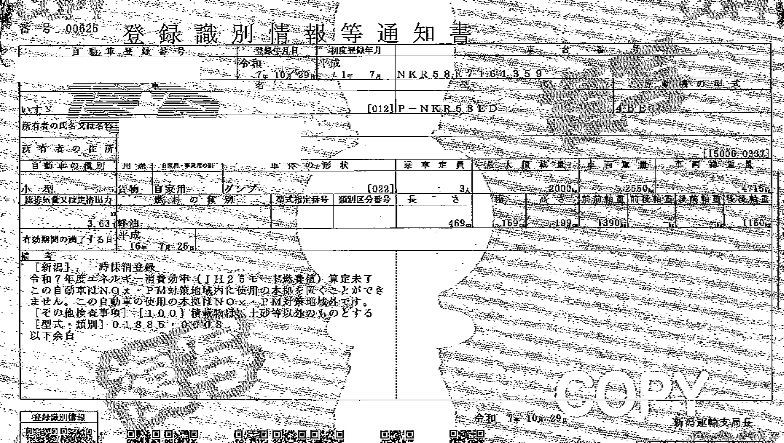 番号 00626 登録識別情報等通知書
自動車登録番号 登録年月日 初度登録年月 車台番号
令和 平成
7年 10月 29日 1年 7月 NKR58E7161359
車名 型式 原動機の型式
いすゞ [012] P-NKR58ED 4BE1
所有者の氏名又は名称
所有者の住所 [15000-0297]
自動車の種別 用途 自家用・事業用の別 車体の形状 乗車定員 最大積載量 車両重量 車両総重量
小型 貨物 自家用 ダンプ [022] 3人 2000kg 2550kg 4715kg
総排気量又は定格出力 燃料の種別 型式指定番号 類別区分番号 長さ 幅 高さ 前前軸重 前後軸重 後前軸重 後後軸重
3.63 軽油 469cm 169cm 199cm 1390kg 1160kg
有効期間の満了する日 平成
16年 7月 26日
備考
[新潟], 一時抹消登録
令和7年度エネルギー消費効率(JH25モード燃費値)算定未了
この自動車はNOx・PM対策地域内に使用の本拠を置くことができ
ません。この自動車の使用の本拠はNOx・PM対策地域外です。
[その他検査事項] [100] 積載物は、土砂等以外のものとする
[型式・類別] 01885・0008
以下余白
COPY
登録識別情報 令和 7年 10月 29日 新潟運輸支局長